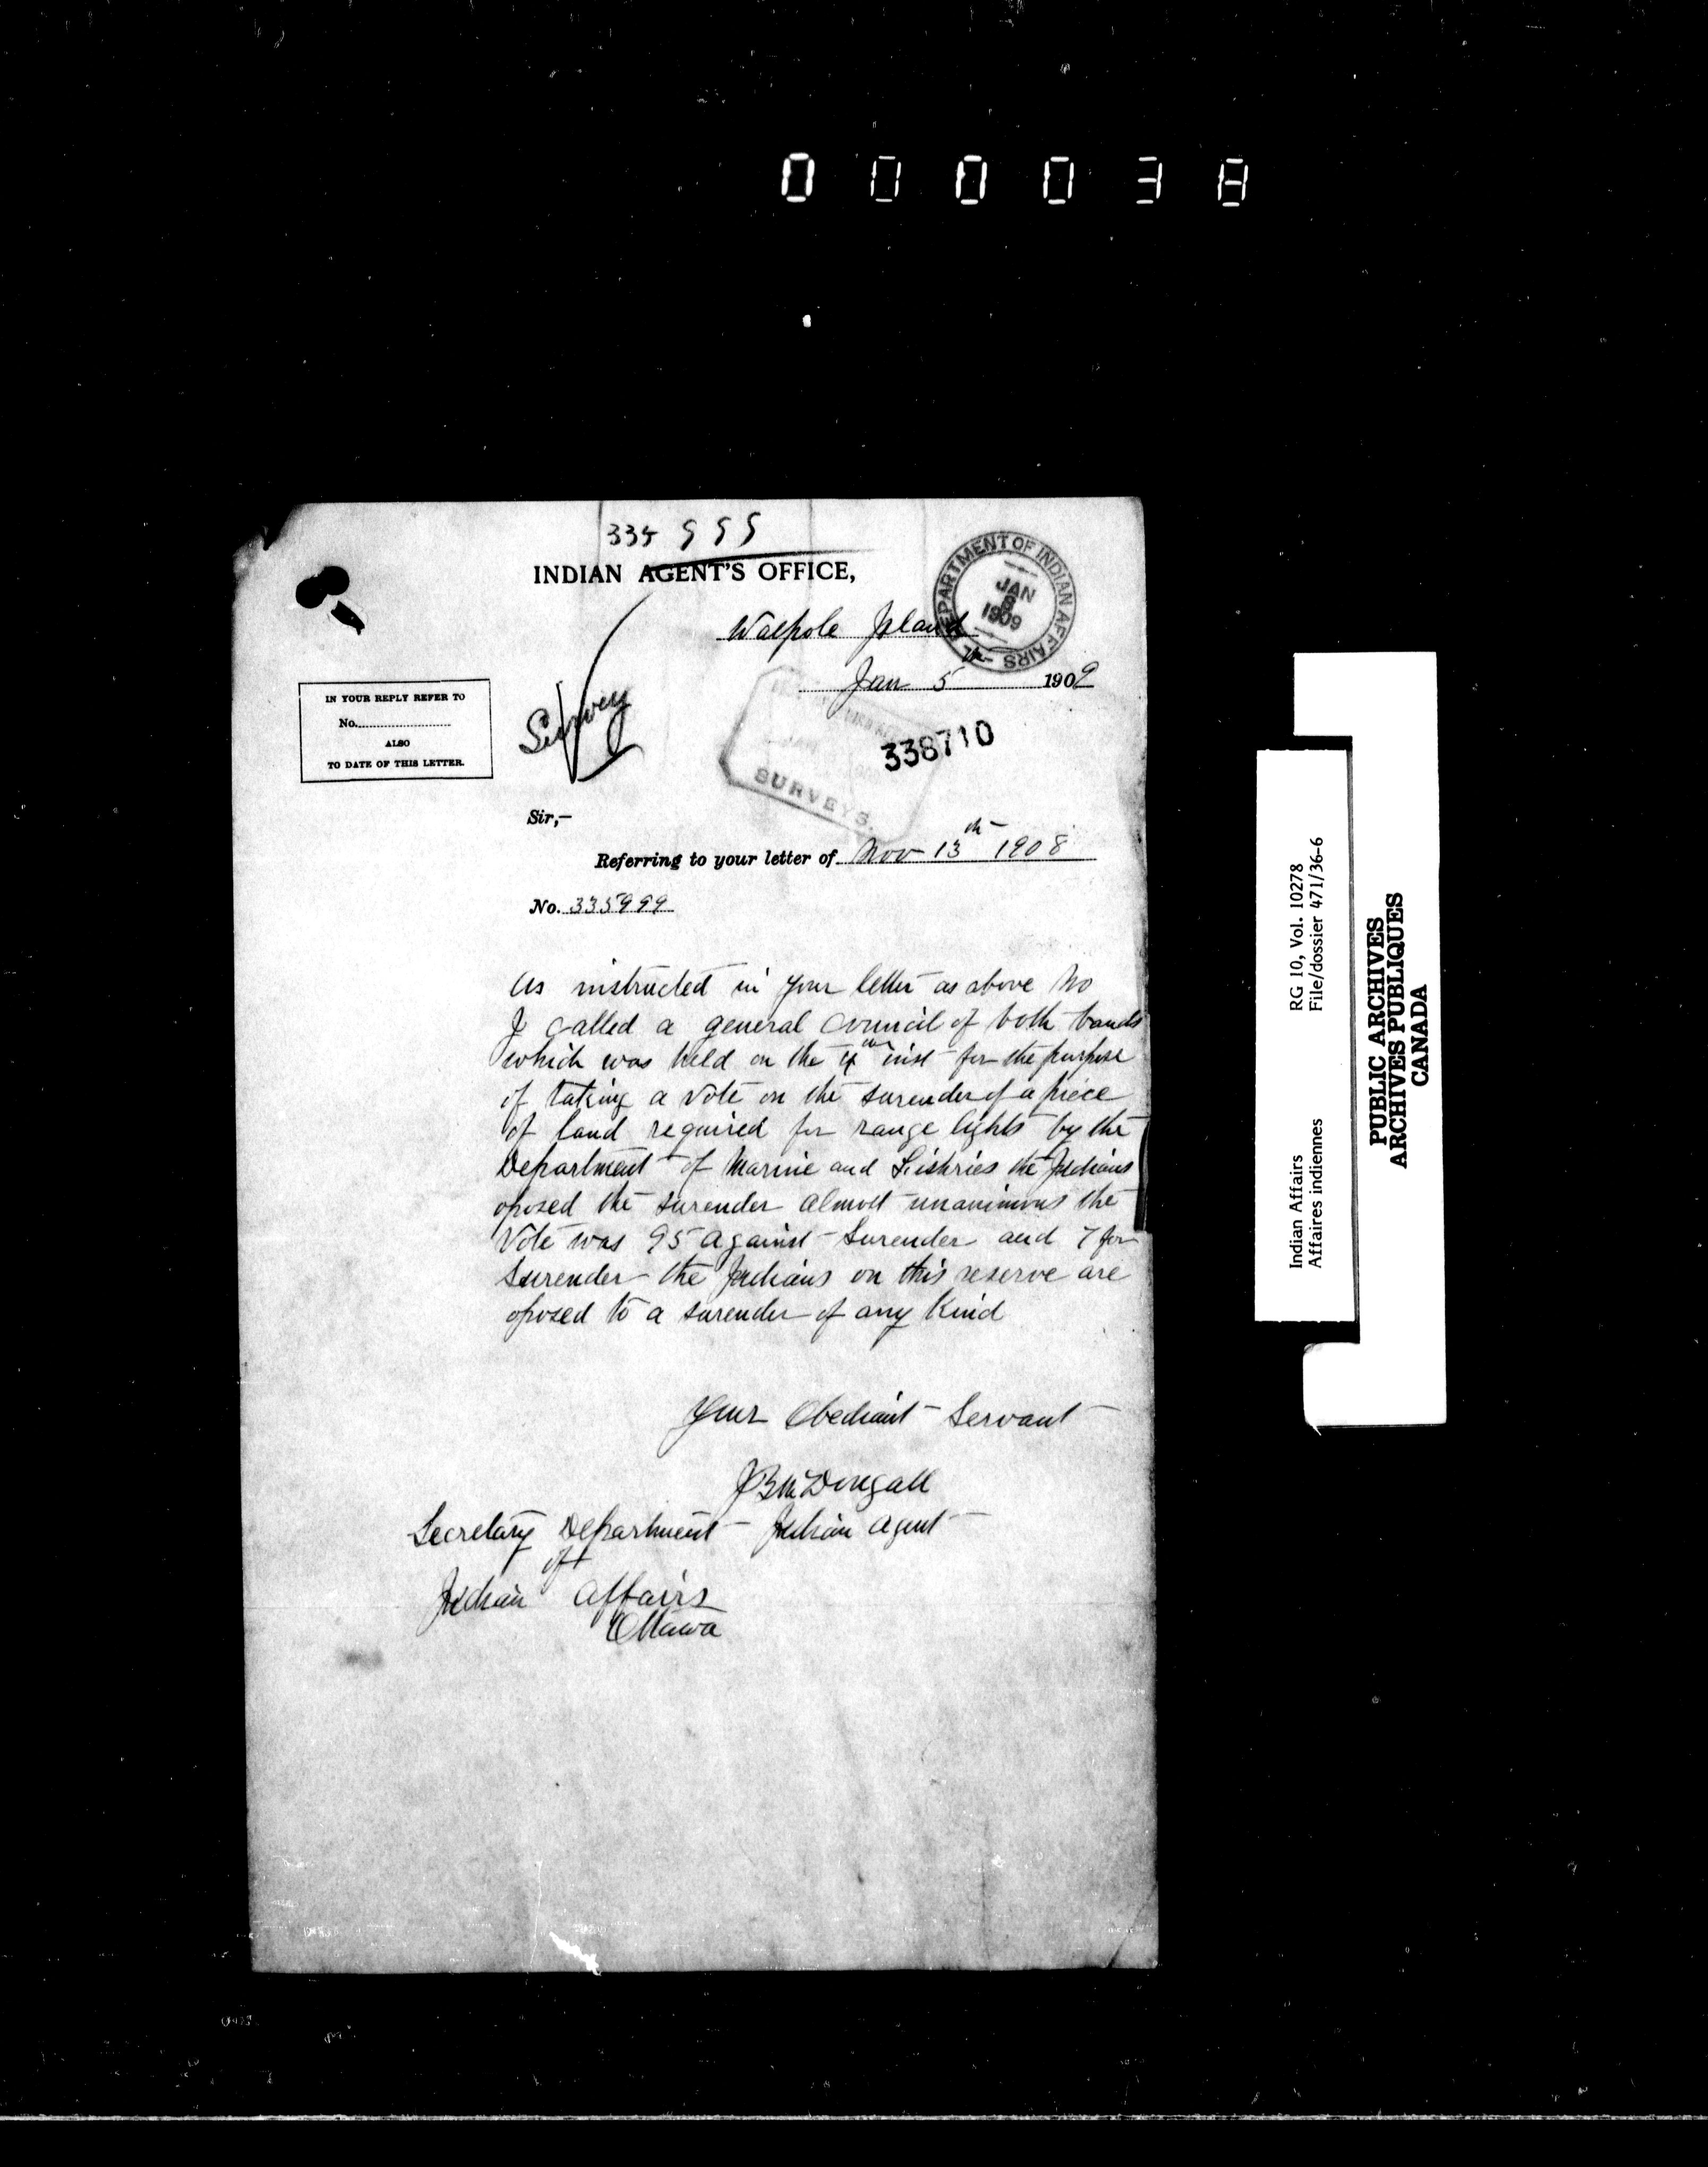 000038
335999
INDIAN AGENT'S OFFICE,
DEPARTMENT OF INDIAN AFFAIRS
JAN
8
1909
Walpole Island
Jan 5th 1909
IN YOUR REPLY REFER TO
No.
ALSO
TO DATE OF THIS LETTER.
Survey
338710
SURVEYS.
Sir,—
Referring to your letter of Nov 13th 1908
No. 335999
As instructed in your letter as above No
I called a general Council of both bands
which was held on the 4th inst for the purpose
of taking a vote on the surender of a piece
of land required for range lights by the
Department of Marine and Fishries the Indians
oposed the surender almost unanimous the
Vote was 95 against Surender and 7 for
Surender the Indians on this reserve are
oposed to a surender of any Kind
Your Obediant Servant
J B McDougall
Indian Agent
Secretary Department
of
Indian Affairs
Ottawa
Indian Affairs RG 10, Vol. 10278
Affaires indiennes File/dossier 471/36-6
PUBLIC ARCHIVES
ARCHIVES PUBLIQUES
CANADA